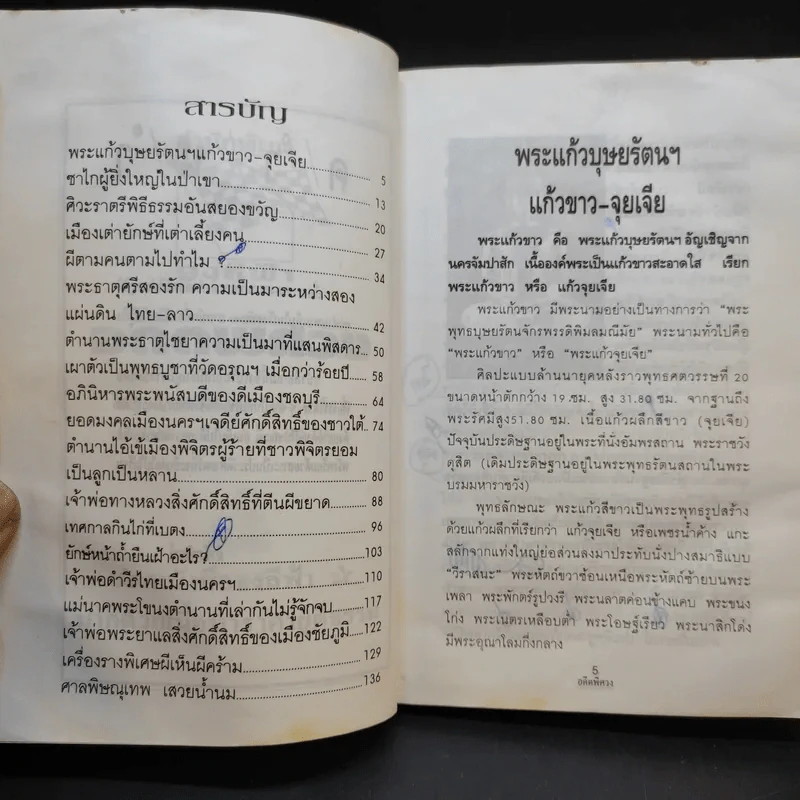 สารบัญ
พระแก้วบุษยรัตนฯแก้วขาว-จุยเจีย..............5
ซาไกผู้ยิ่งใหญ่ในป่าเขา..............13
ศิวะราตรีพิธีธรรมอันสยองขวัญ..............20
เมืองเต่ายักษ์ที่เต่าเลี้ยงคน..............27
ผีตามคนตามไปทำไม ?..............34
พระธาตุศรีสองรัก ความเป็นมาระหว่างสอง
แผ่นดิน ไทย-ลาว..............42
ตำนานพระธาตุไชยาความเป็นมาที่แสนพิสดาร...50
เผาตัวเป็นพุทธบูชาที่วัดอรุณฯ เมื่อกว่าร้อยปี...58
อภินิหารพระพนัสบดีของดีเมืองชลบุรี..............64
ยอดมงคลเมืองนครฯเจดีย์ศักดิ์สิทธิ์ของชาวใต้...74
ตำนานไอ้เข้เมืองพิจิตรผู้ร้ายที่ชาวพิจิตรยอม
เป็นลูกเป็นหลาน..............80
เจ้าพ่อทางหลวงสิ่งศักดิ์สิทธิ์ที่ตีนผีขยาด..............88
เทศกาลกินไก่ที่เบตง..............96
ยักษ์หน้าถ้ำยืนเฝ้าอะไร?..............103
เจ้าพ่อดำวีรไทยเมืองนครฯ..............110
แม่นาคพระโขนงตำนานที่เล่ากันไม่รู้จักจบ...117
เจ้าพ่อพระยาแลสิ่งศักดิ์สิทธิ์ของเมืองชัยภูมิ...122
เครื่องรางพิเศษผีเห็นผีคร้าม..............129
ศาลพิษณุเทพ เสวยน้ำนม..............136
พระแก้วบุษยรัตนฯ
แก้วขาว-จุยเจีย
พระแก้วขาว คือ พระแก้วบุษยรัตนฯ อัญเชิญจาก
นครจัมปาสัก เนื้อองค์พระเป็นแก้วขาวสะอาดใส เรียก
พระแก้วขาว หรือ แก้วจุยเจีย
พระแก้วขาว มีพระนามอย่างเป็นทางการว่า "พระ
พุทธบุษยรัตนจักรพรรดิพิมลมณีมัย" พระนามทั่วไปคือ
"พระแก้วขาว" หรือ "พระแก้วจุยเจีย"
ศิลปะแบบล้านนายุคหลังราวพุทธศตวรรษที่ 20
ขนาดหน้าตักกว้าง 19 ซม. สูง 31.80 ซม. จากฐานถึง
พระรัศมีสูง51.80 ซม. เนื้อแก้วผลึกสีขาว (จุยเจีย)
ปัจจุบันประดิษฐานอยู่ในพระที่นั่งอัมพรสถาน พระราชวัง
ดุสิต (เดิมประดิษฐานอยู่ในพระพุทธรัตนสถานในพระ
บรมมหาราชวัง)
พุทธลักษณะ พระแก้วสีขาวเป็นพระพุทธรูปสร้าง
ด้วยแก้วผลึกที่เรียกว่า แก้วจุยเจีย หรือเพชรน้ำค้าง แกะ
สลักจากแท่งใหญ่ย่อส่วนลงมาประทับนั่งปางสมาธิแบบ
"วีราสนะ" พระหัตถ์ขวาซ้อนเหนือพระหัตถ์ซ้ายบนพระ
เพลา พระพักตร์รูปวงรี พระนลาตค่อนข้างแคบ พระขนง
โก่ง พระเนตรเหลือบต่ำ พระโอษฐ์เรียว พระนาสิกโด่ง
มีพระอุณาโลมกึ่งกลาง
5
อดีตพิศวง